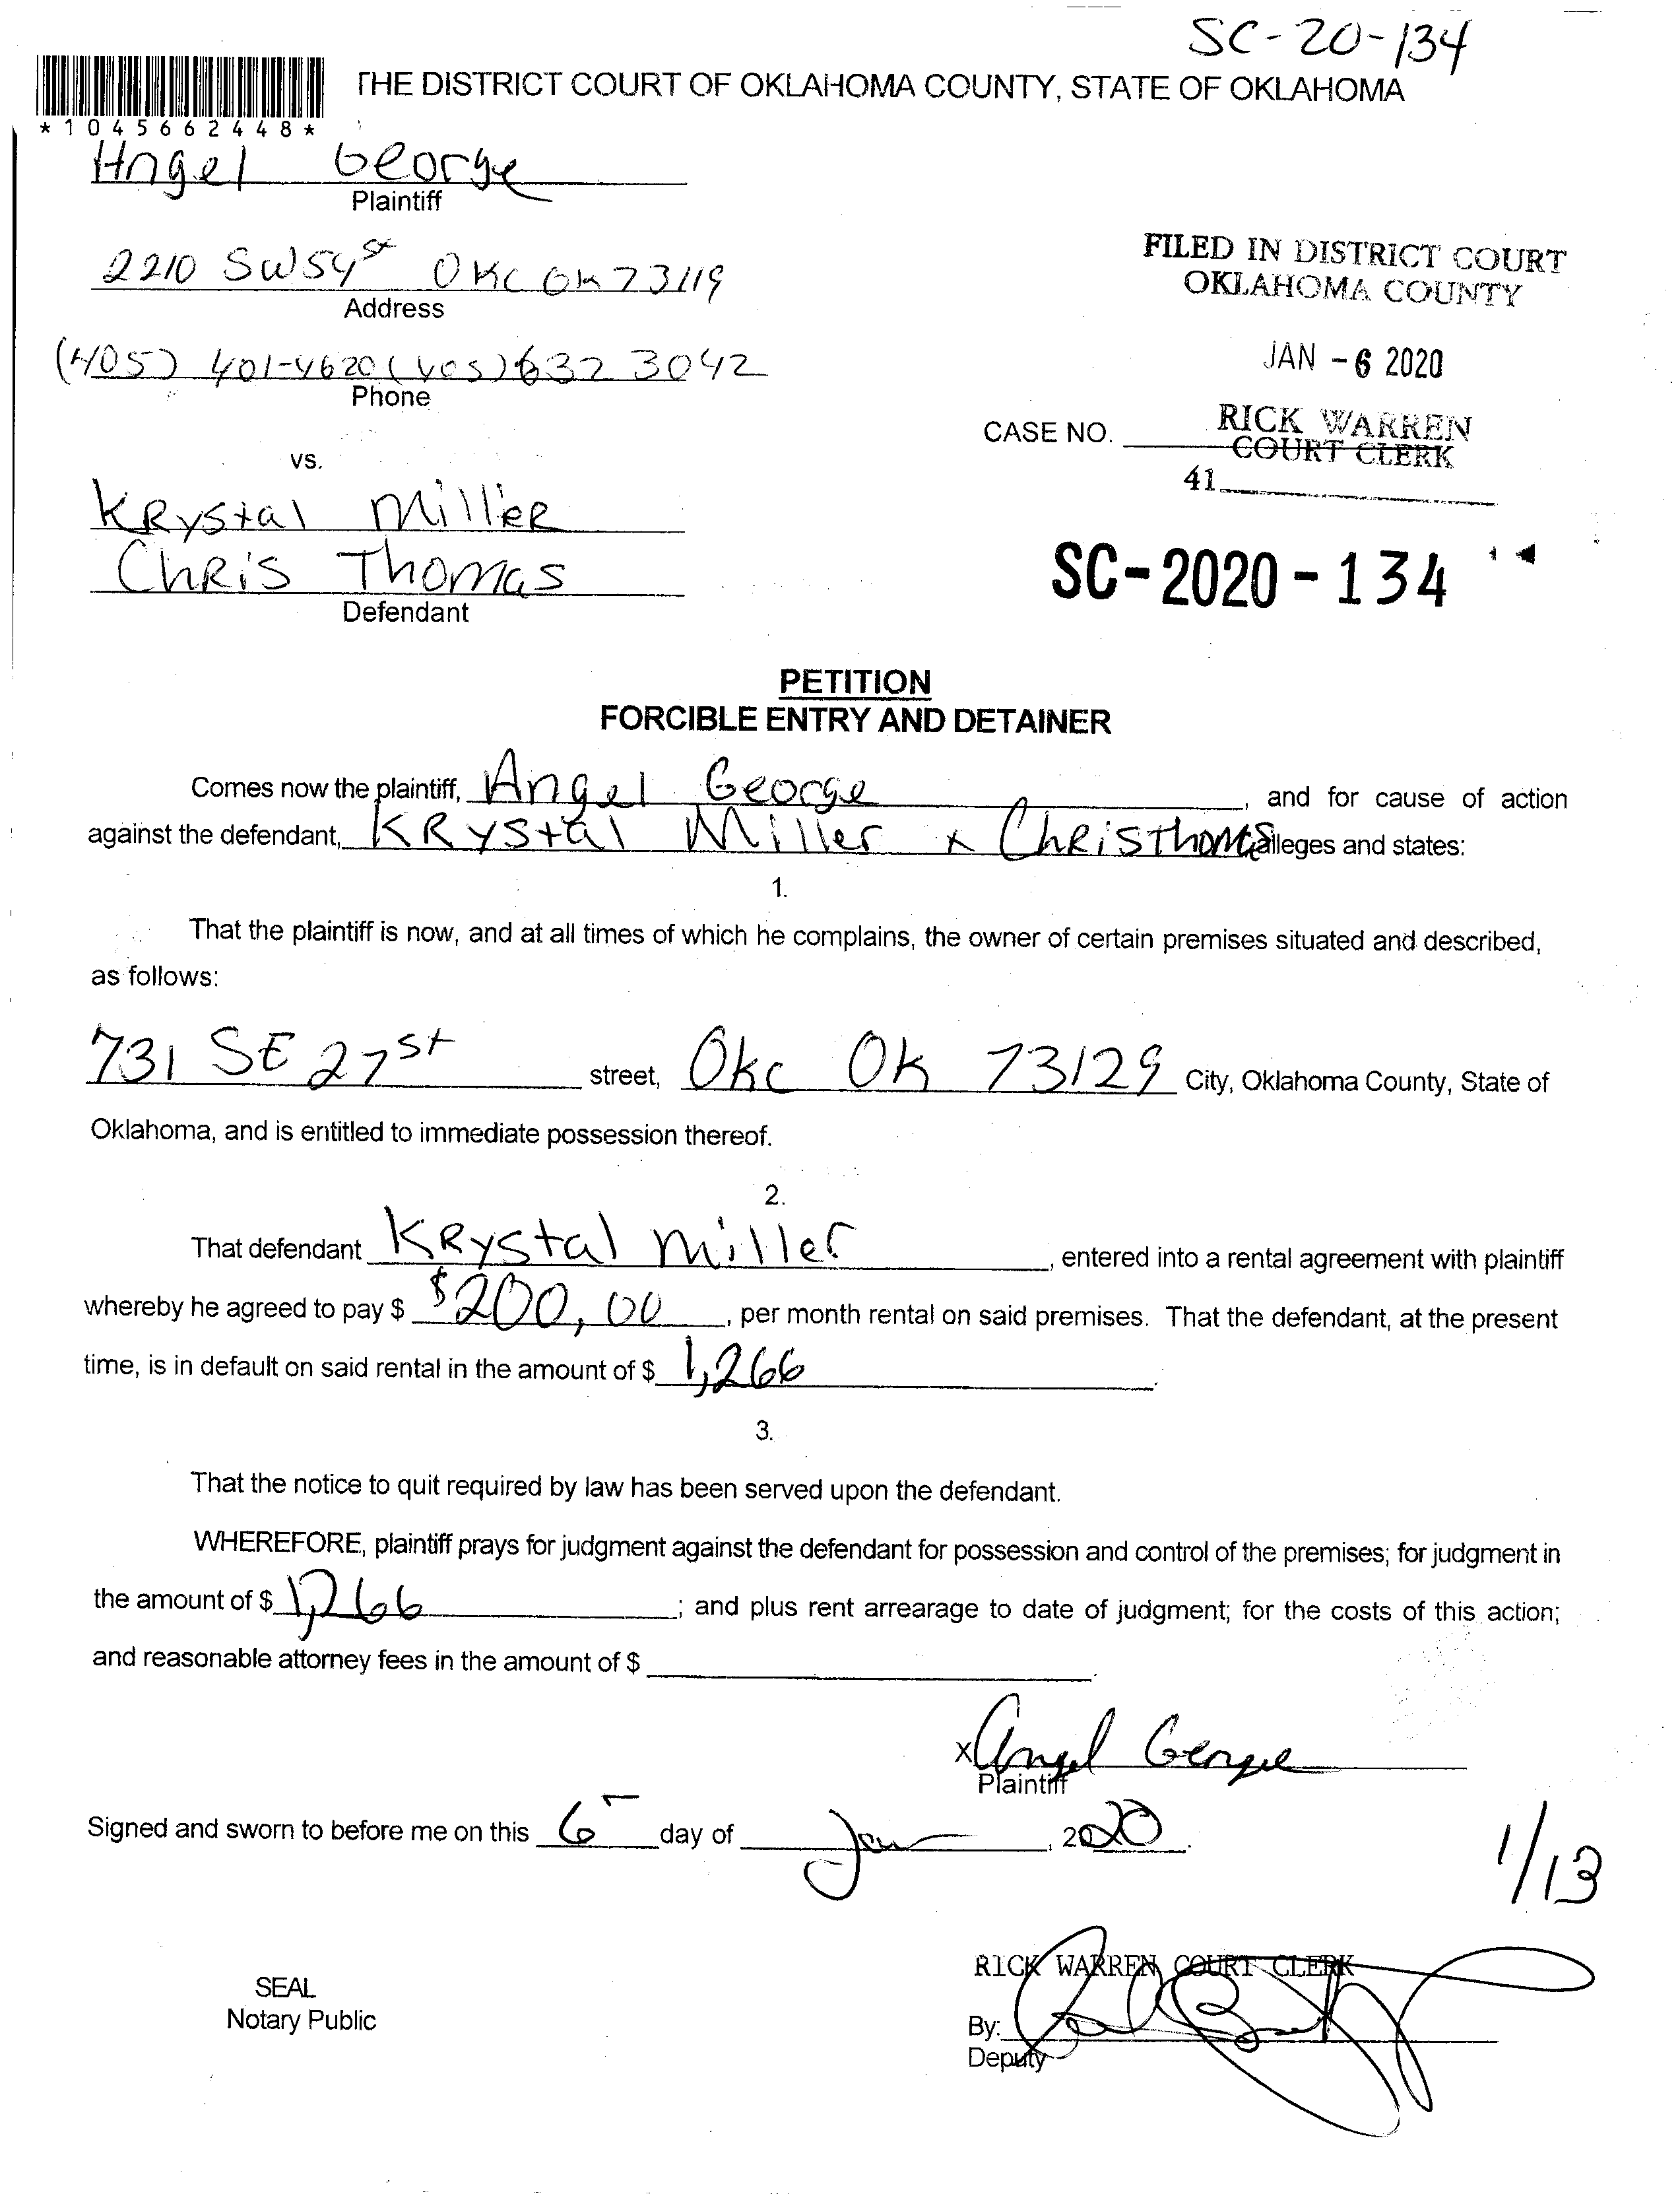 SC-20-134
THE DISTRICT COURT OF OKLAHOMA COUNTY, STATE OF OKLAHOMA
*1045662448*
Angel George
Plaintiff
2210 SW 54 st OKC OK 73119
Address
(405) 401-4620 (405) 632 3042
Phone
vs.
KRystal MilleR
ChRis Thomas
Defendant
FILED IN DISTRICT COURT
OKLAHOMA COUNTY
JAN - 6 2020
RICK WARREN
COURT CLERK
CASE NO.
41
SC-2020-134
PETITION
FORCIBLE ENTRY AND DETAINER
Comes now the plaintiff, Angel George, and for cause of action
against the defendant, KRystal Miller x ChRis thomas alleges and states:
1.
That the plaintiff is now, and at all times of which he complains, the owner of certain premises situated and described,
as follows:
731 SE 27 st street, Okc Ok 73129 City, Oklahoma County, State of
Oklahoma, and is entitled to immediate possession thereof.
2.
That defendant KRystal miller, entered into a rental agreement with plaintiff
whereby he agreed to pay $ $200,00, per month rental on said premises. That the defendant, at the present
time, is in default on said rental in the amount of $ 1,266.
3.
That the notice to quit required by law has been served upon the defendant.
WHEREFORE, plaintiff prays for judgment against the defendant for possession and control of the premises; for judgment in
the amount of $ 1,266; and plus rent arrearage to date of judgment; for the costs of this action;
and reasonable attorney fees in the amount of $ .
x Angel George
Plaintiff
Signed and sworn to before me on this 6 day of Jan, 2020.
1/13
RICK WARREN, COURT CLERK
SEAL
Notary Public
By:
Deputy